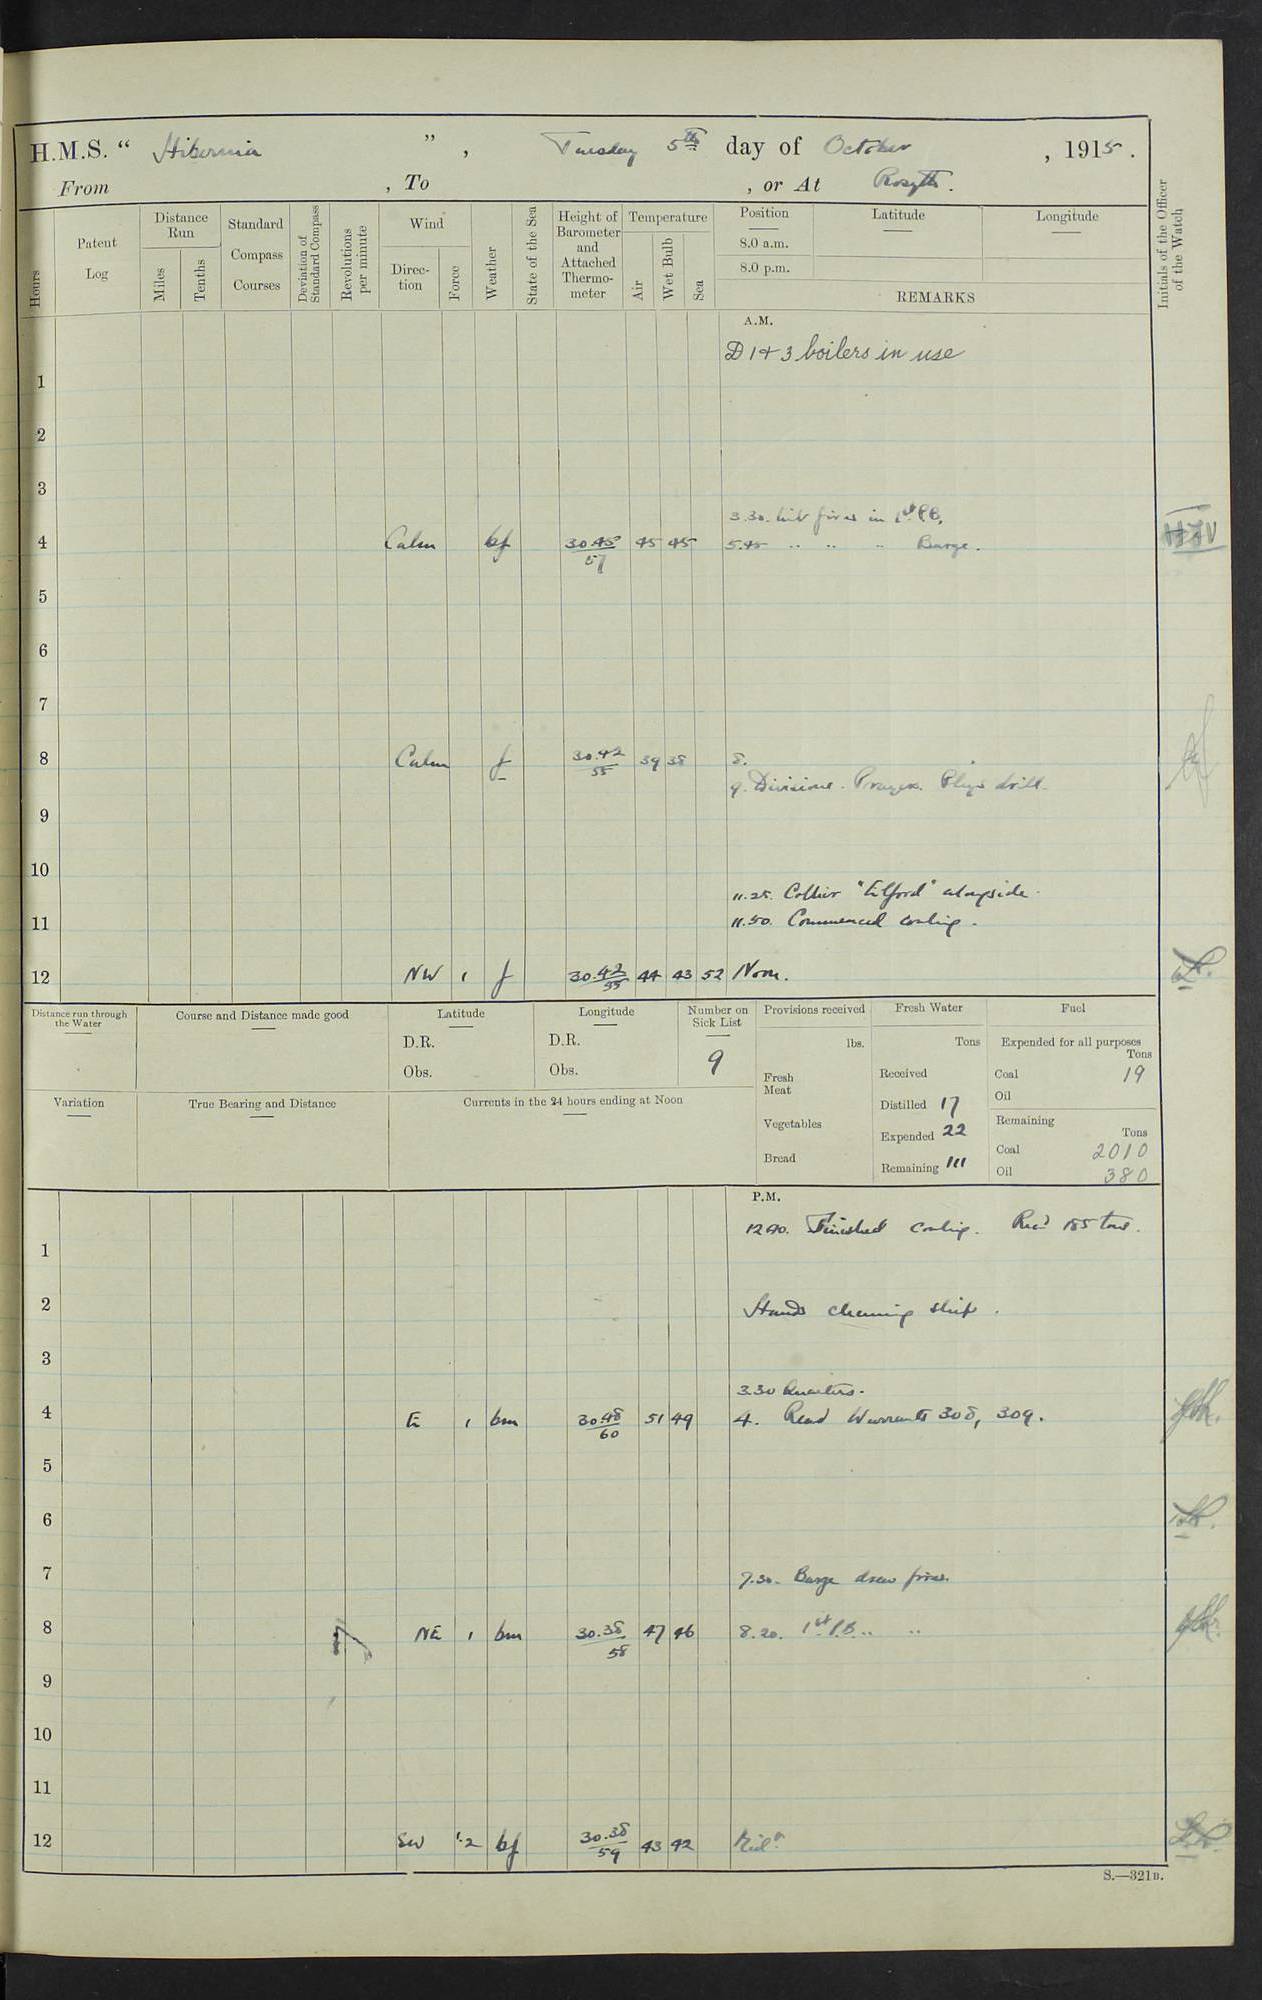 H.M.S. “ Hibernia ” , Tuesday 5th day of October , 1915.
From , To , or At Rosyth.
Hours
Patent Log
Distance Run
Miles
Tenths
Standard Compass Courses
Deviation of Standard Compass
Revolutions per minute
Wind
Direc-tion
Force
Weather
State of the Sea
Height of Barometer and Attached Thermo-meter
Temperature
Air
Wet Bulb
Sea
Position Latitude Longitude
8.0 a.m.
8.0 p.m.
REMARKS
Initials of the Officer of the Watch
A.M.
D 1 & 3 boilers in use
1
2
3
3.30. Lit fires in 1st P.B.
4 Calm bf 30.48/57 45 45 5.45 " " " Barge.
5
6
7
8 Calm f 30.42/55 39 38 8.
9. Divisions. Prayers. Phys drill.
9
10
11.25. Collier "Tilford" alongside.
11 11.50. Commenced coaling.
12 NW 1 f 30.42/55 44 43 52 Noon.
Distance run through the Water
Course and Distance made good
Latitude
D.R.
Obs.
Longitude
D.R.
Obs.
Number on Sick List
9
Provisions received
lbs.
Fresh Meat
Vegetables
Bread
Fresh Water
Tons
Received
Distilled 17
Expended 22
Remaining 111
Fuel
Expended for all purposes
Tons
Coal 19
Oil
Remaining
Tons
Coal 2010
Oil 380
Variation
True Bearing and Distance
Currents in the 24 hours ending at Noon
P.M.
12.40. Finished coaling. Recd 185 tons.
1
2 Hands cleaning ship.
3
3.30 Quarters.
4 E 1 bm 30.48/60 51 49 4. Read Warrants 308, 309.
5
6
7 7.30. Barge drew fires.
8 NE 1 bm 30.38/58 47 46 8.20. 1st P.B. " "
9
10
11
12 SW 1.2 bf 30.38/59 43 42 Midt
S.—321B.